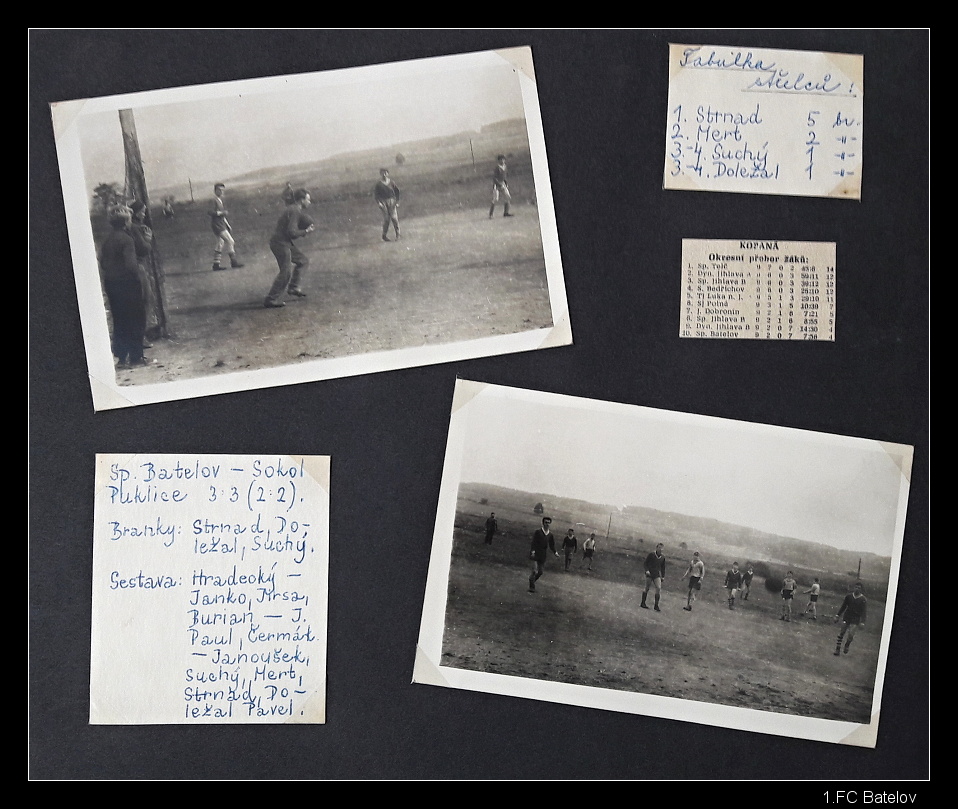 Tabulka
střelců!
1. Strnad 5 br.
2. Mert 2 -"-
3.-4. Suchý 1 -"-
3.-4. Doležal 1 -"-
KOPANÁ
Okresní přebor žáků:
1. Sp. Telč 9 7 0 2 45:8 14
2. Dyn. Jihlava A 8 6 0 3 59:11 12
3. Sp. Jihlava B 9 6 0 3 36:12 12
4. S. Bedřichov 9 6 0 3 25:10 12
5. Tj Luka n. J. 9 5 1 3 29:10 11
6. Sj Polná 9 3 1 5 10:38 7
7. J. Dobronín 9 2 1 6 7:21 5
8. Sp. Jihlava B 9 2 1 6 8:55 5
9. Dyn. Jihlava B 9 2 0 7 14:30 4
10. Sp. Batelov 9 2 0 7 7:58 4
Sp. Batelov – Sokol
Puklice 3:3 (2:2).
Branky: Strnad, Do-
ležal, Suchý.
Sestava: Hradecký –
Janko, Jirsa,
Burian – J.
Paul, Čermák
– Janoušek,
Suchý, Mert,
Strnad, Do-
ležal Pavel.
1.FC Batelov